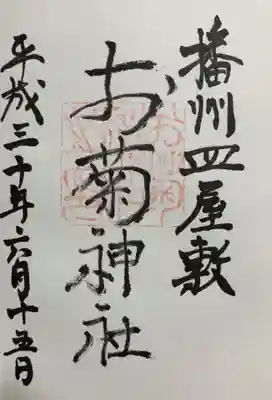 播州皿屋敷
お菊神社
平成三十年六月十五日